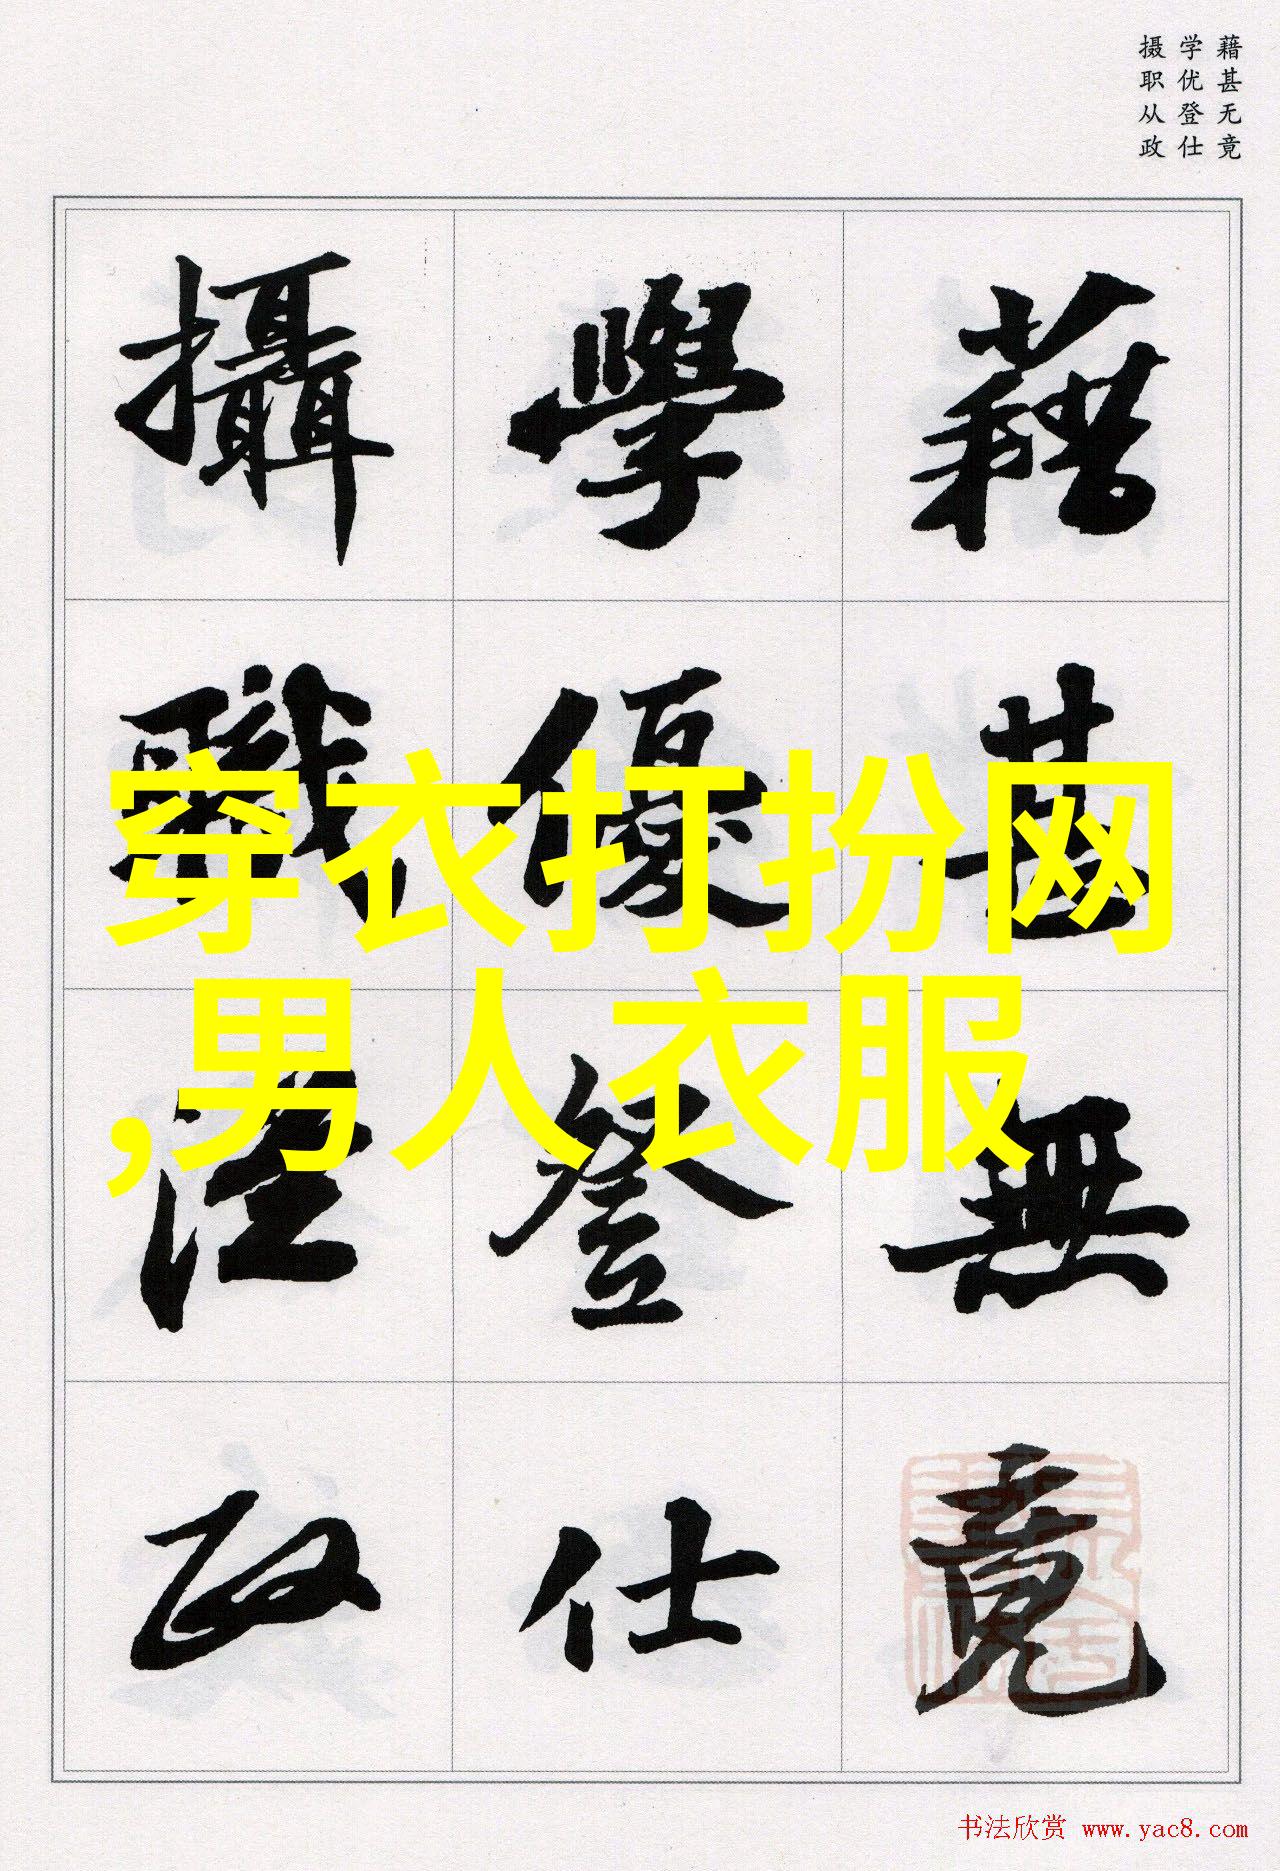 藉甚无竟
学优登仕
摄职从政
藉甚無竟
學優登仕
攝職從政
穿衣打扮网
,男人衣服
书法欣赏 www.yac8.com